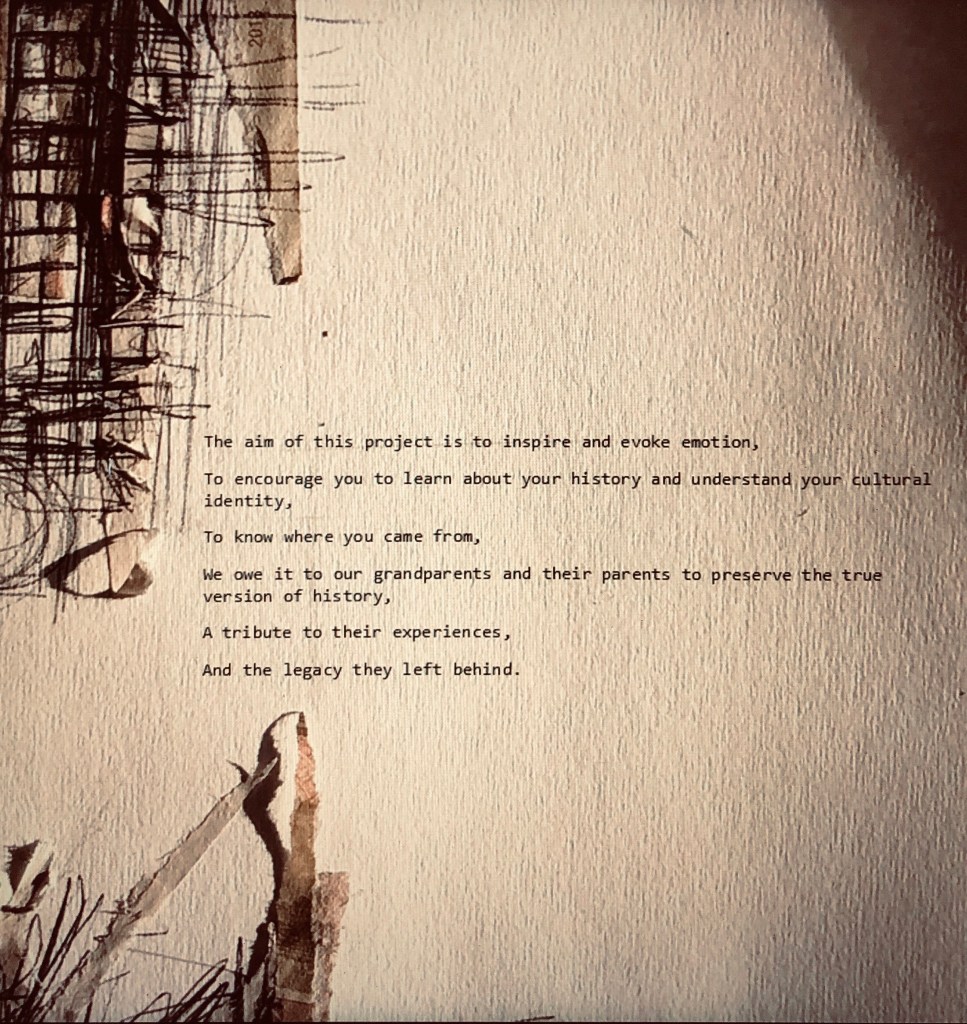 2018
The aim of this project is to inspire and evoke emotion,
To encourage you to learn about your history and understand your cultural
identity,
To know where you came from,
We owe it to our grandparents and their parents to preserve the true
version of history,
A tribute to their experiences,
And the legacy they left behind.